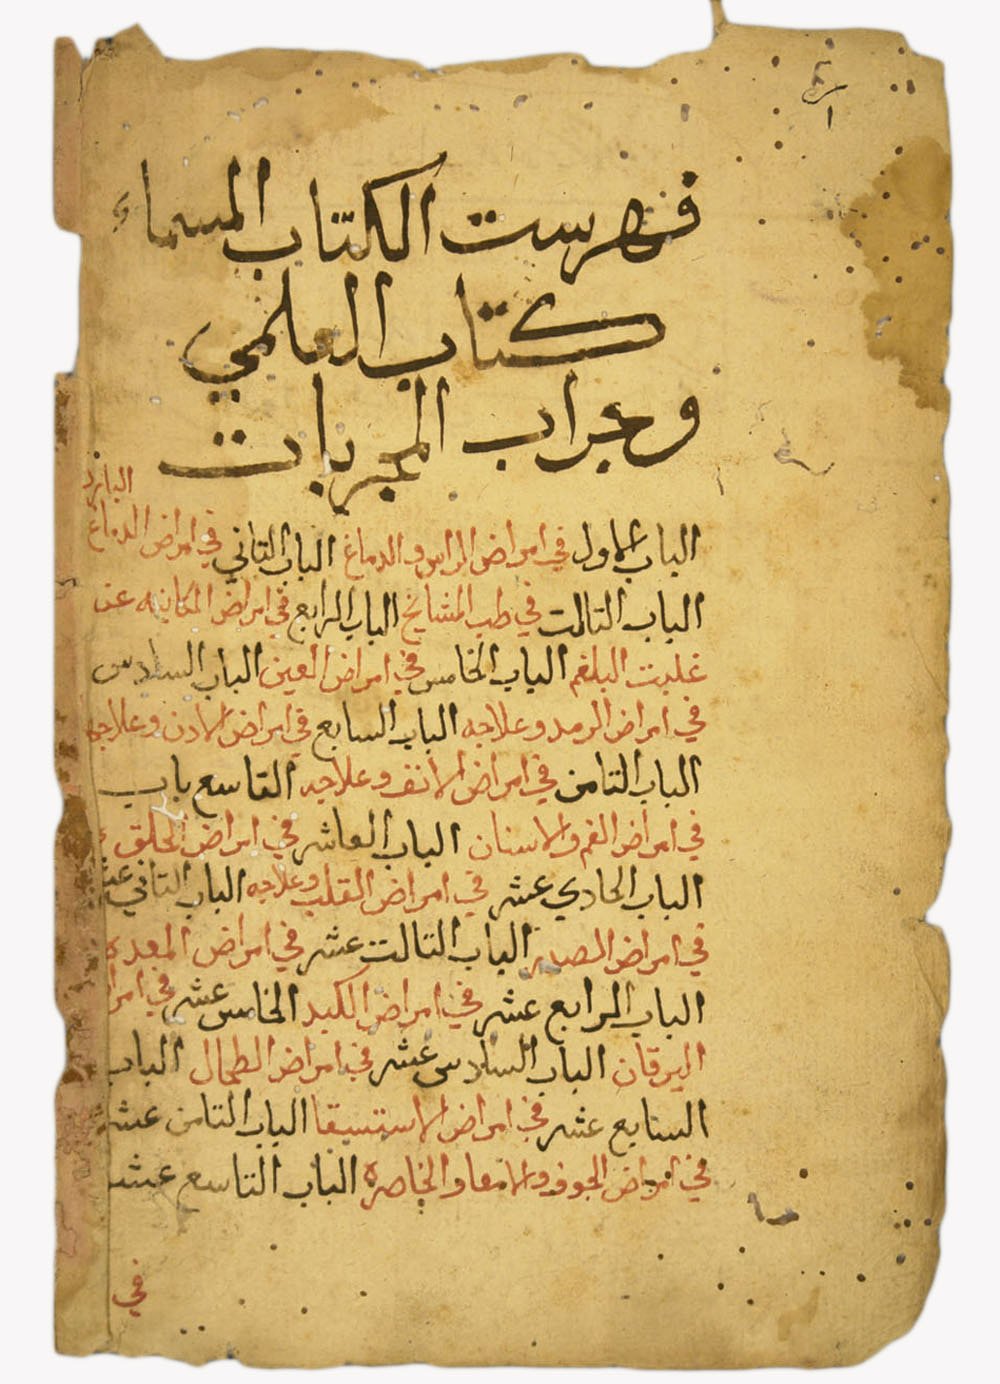 فهرست الكتاب المسماء
كتاب العلمي
وجراب المجربات
البارد
الباب الاول في امراض الراس والدماغ الباب التاني في امراض الدماغ
الباب التالت في طب المشائخ الباب الرابع في امراض عن
غلبت البلغم الباب الخامس في امراض العين الباب السادس
في امراض الرمد وعلاجه الباب السابع في امراض الادن وعلاجها
الباب التامن في امراض الانف وعلاجه التاسع باب
في امراض الفم والاسنان الباب العاشر في امراض الحلق
الباب الحادي عشر في امراض القلب وعلاجه الباب التاني عشر
في امراض الصدر الباب التالت عشر في امراض المعده
الباب الرابع عشر في امراض الكبد الخامس عشر في امرا
اليرقان الباب السادس عشر في امراض الطحال الباب
السابع عشر في امراض الاستسقا الباب التامن عشر
في امراض الجوف والامعا والخاصره الباب التاسع عشر
في